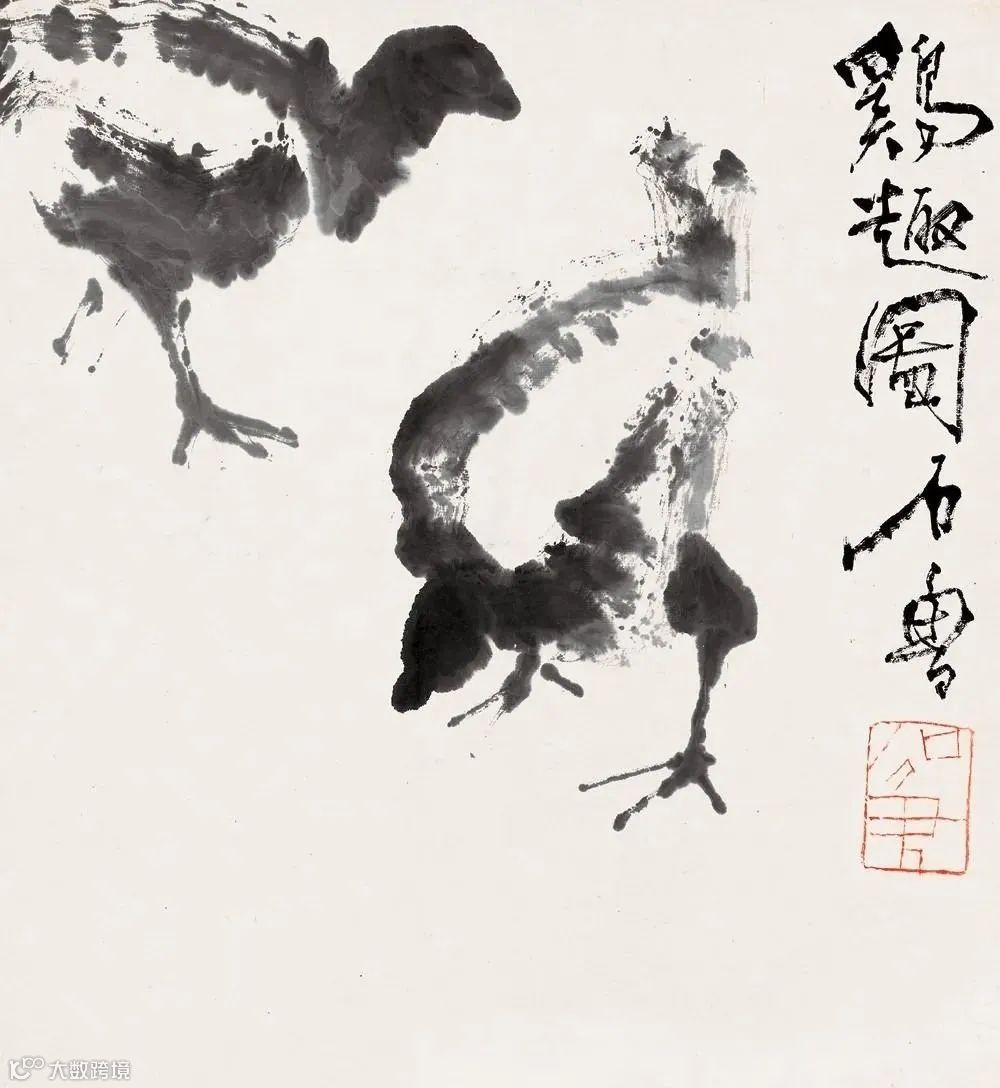 鷄趣圖石魯
大数跨境